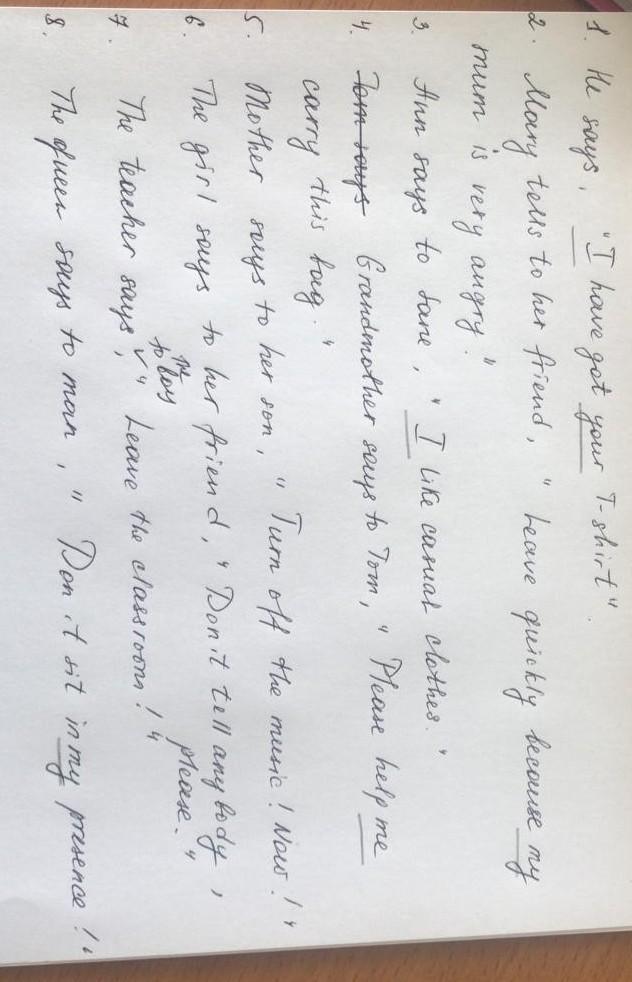 1. He says, "I have got your T-shirt".
2. Mary tells to her friend, "Leave quickly because my
mum is very angry."
3. Ann says to Jane, "I like casual clothes."
4. Tom says Grandmother says to Tom, "Please help me
carry this bag."
5. Mother says to her son, "Turn off the music! Now!"
6. The girl says to her friend, "Don't tell anybody,
please."
to boy
7. The teacher says, "Leave the classroom!"
8. The queen says to man, "Don't sit in my presence!"